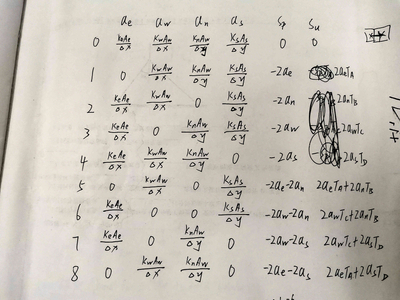 ae aw an as Sp Su
0 KeAe/Δx KwAw/Δx KnAw/Δy KsAs/Δy 0 0
1 0 KwAw/Δx KnAw/Δy KsAs/Δy -2ae 2aeTA
2 KeAe/Δx KwAw/Δx 0 KsAs/Δy -2an 2anTB
3 KeAe/Δx 0 KnAw/Δy KsAs/Δy -2aw 2awTC
4 KeAe/Δx KwAw/Δx KnAw/Δy 0 -2as 2asTD
5 0 KwAw/Δx 0 KsAs/Δy -2ae-2an 2aeTA+2anTB
6 KeAe/Δx 0 0 KsAs/Δy -2aw-2an 2awTC+2anTB
7 KeAe/Δx 0 KnAw/Δy 0 -2aw-2as 2awTC+2asTD
8 0 KwAw/Δx KnAw/Δy 0 -2ae-2as 2aeTA+2asTD